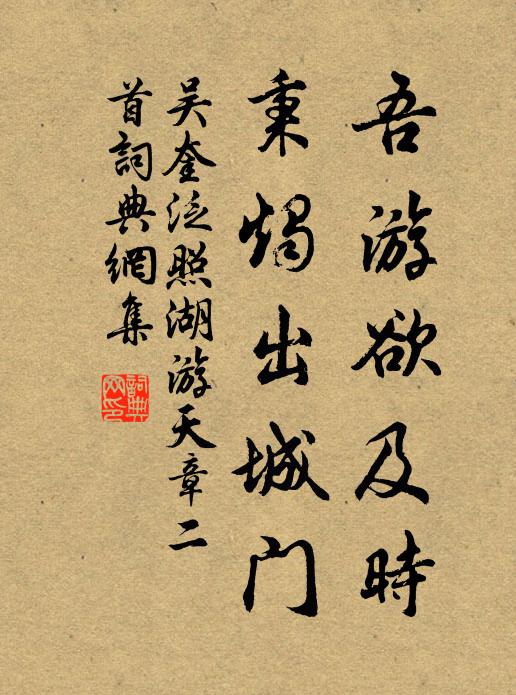 吾游欲及時
秉燭出城门
吴奎泛照湖游天章二
首詞典網集
詞典网印